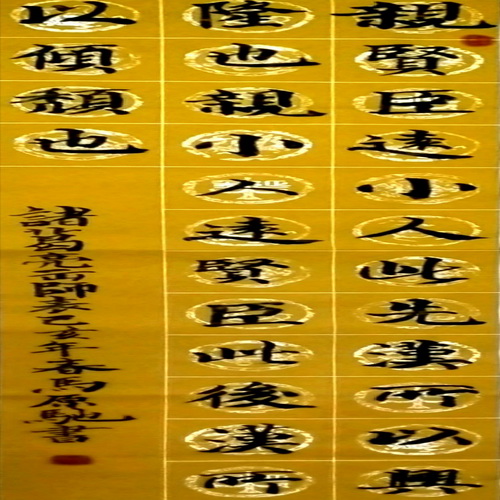 親賢臣遠小人此先漢所以興
隆也親小人遠賢臣此後漢所
以傾頹也
諸葛亮出師表己亥年春馬原馳書